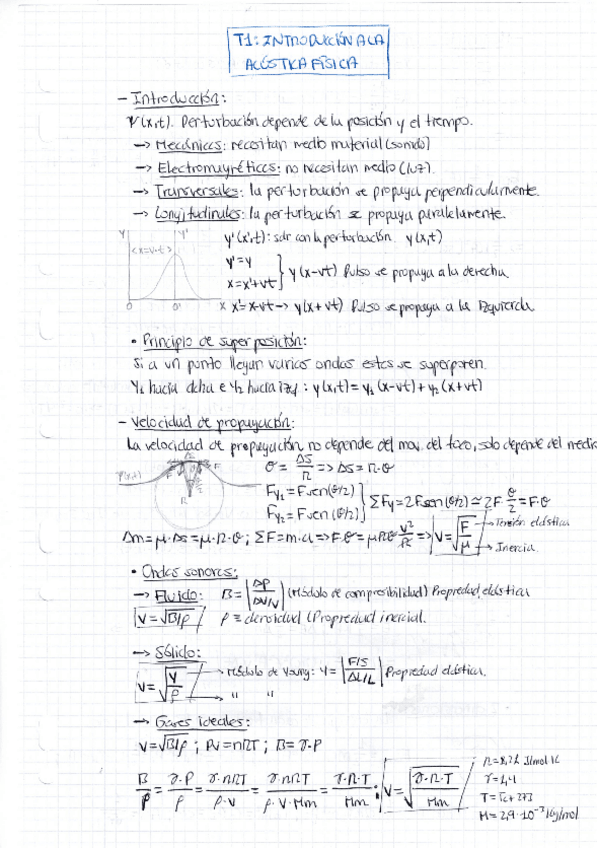 T1: INTRODUCCIÓN A LA
ACÚSTICA FÍSICA
- Introducción:
Ψ(x,t). Perturbación depende de la posición y el tiempo.
→ Mecánicas: necesitan medio material (sonido)
→ Electromagnéticas: no necesitan medio (luz).
→ Transversales: la perturbación se propaga perpendicularmente.
→ Longitudinales: la perturbación se propaga paralelamente.
Y Y' <x=v·t> 0 0' X
y'(x',t): sdr con la perturbación. y(x,t)
y'=y
x=x'+vt } y(x-vt) Pulso se propaga a la derecha.
x'=x-vt → y(x+vt) Pulso se propaga a la Izquierda.
• Principio de superposición:
Si a un punto llegan varias ondas estas se superponen.
Y₁ hacia dcha e Y₂ hacia izq: y(x,t) = y₁(x-vt) + y₂(x+vt)
- Velocidad de propagación:
La velocidad de propagación no depende del mov. del foco, solo depende del medio
θ = ΔS/R => ΔS = R·θ
Fy₁ = Fsen(θ/2)
Fy₂ = Fsen(θ/2) } ΣFy = 2Fsen(θ/2) ≃ 2F·θ/2 = F·θ
Δm = μ·ΔS = μ·R·θ ; ΣF = m·a => F·θ = μRθ v²/R => V = √(F/μ) → Tensión elástica → Inercia.
• Ondas sonoras:
→ Fluido: B = |ΔP/ΔV/V| (Módulo de compresibilidad) Propiedad elástica
V = √B/ρ ρ ≡ densidad (Propiedad inercial.
→ Sólido:
V = √(Y/ρ) → Módulo de Young: Y = |F/S/ΔL/L| Propiedad elástica.
→ " "
→ Gases ideales:
V = √B/ρ ; PV = nRT ; B = γ·P
B/ρ = γ·P/ρ = γ·nRT/ρ·V = γ·nRT/ρ·V·Mm = γ·R·T/Mm ; V = √(γ·R·T/Mm)
R = 8,31 J/mol K
γ = 1,4
T = Tc + 273
M = 2,9·10⁻² Kg/mol